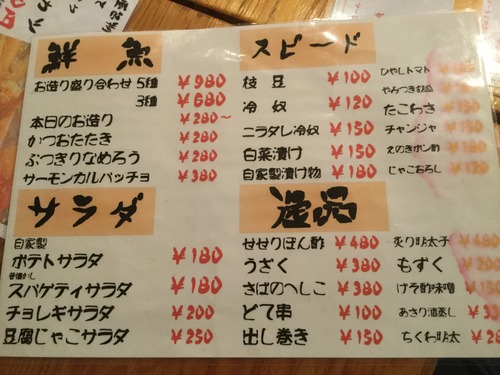 鮮魚
お造り盛り合わせ 5種 ¥980
3種 ¥680
本日のお造り ¥280～
かつおたたき ¥280
ぶつぎりなめろう ¥280
サーモンカルパッチョ ¥380
スピード
枝豆 ¥100
冷奴 ¥120
ニラダレ冷奴 ¥150
白菜漬け ¥150
自家製漬け物 ¥180
ひやしトマト
やみつき
たこわさ
チャンジャ
えのきポン酢
じゃこおろし
サラダ
自家製
ポテトサラダ ¥180
昔懐かし
スパゲティサラダ ¥180
チョレギサラダ ¥200
豆腐じゃこサラダ ¥250
逸品
せせりぽん酢 ¥480
うざく ¥380
さばのへしこ ¥380
どて串 ¥100
出し巻き ¥150
炙り明太子 ¥480
もずく ¥200
酢味噌 ¥150
あさり酒蒸し
ちくわ明太